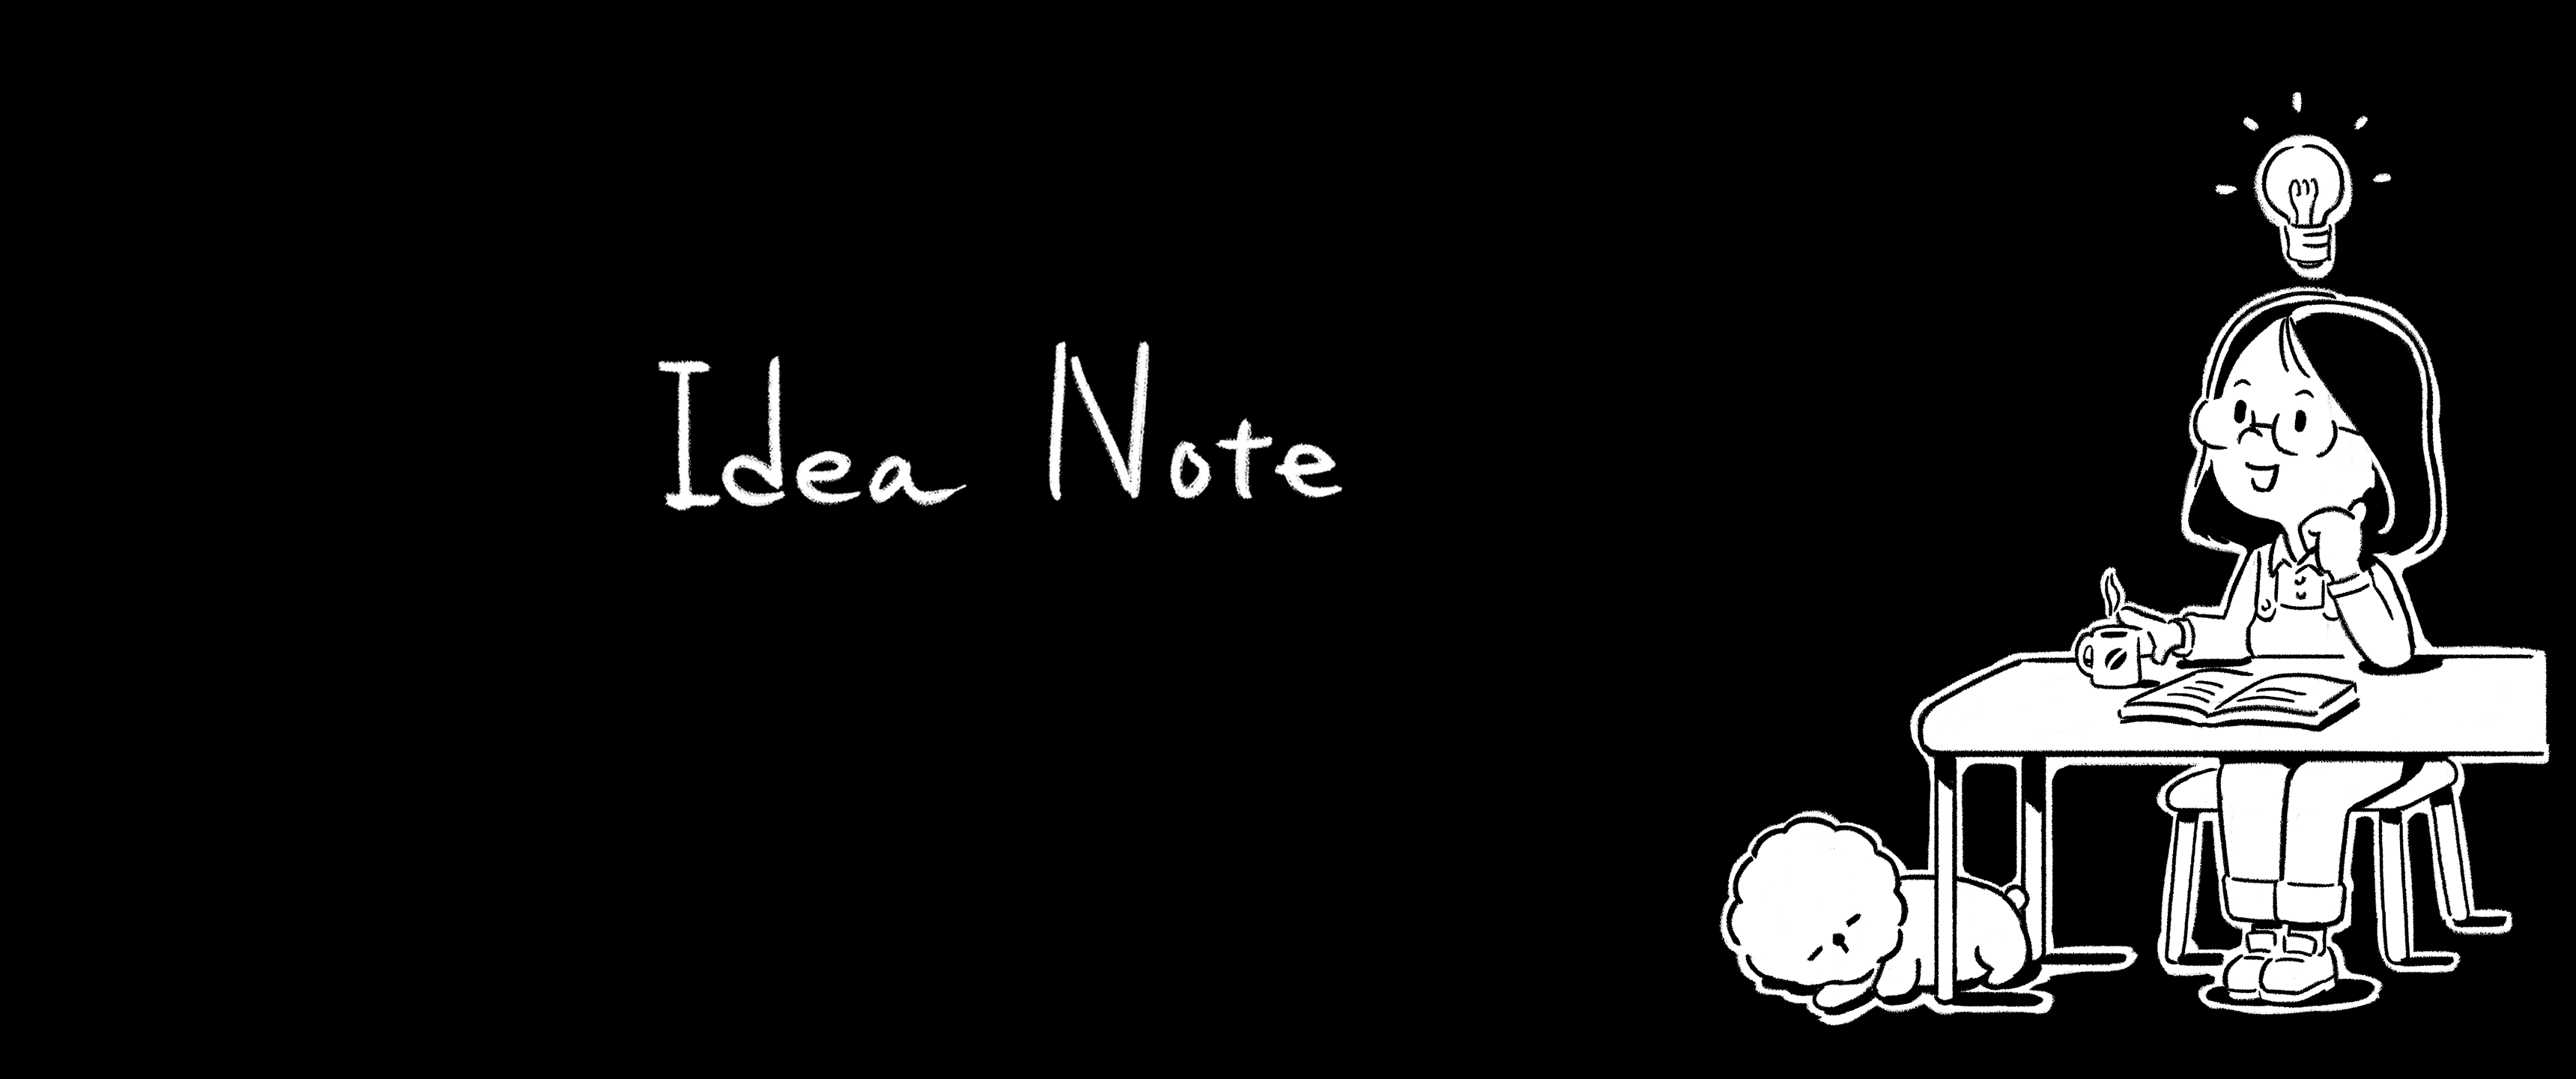 Idea Note